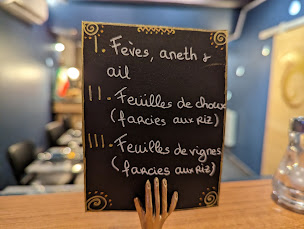 I. Fèves, aneth &
ail
II. Feuilles de choux
(farcies aux Riz)
III. Feuilles de vignes
(farcies aux Riz)